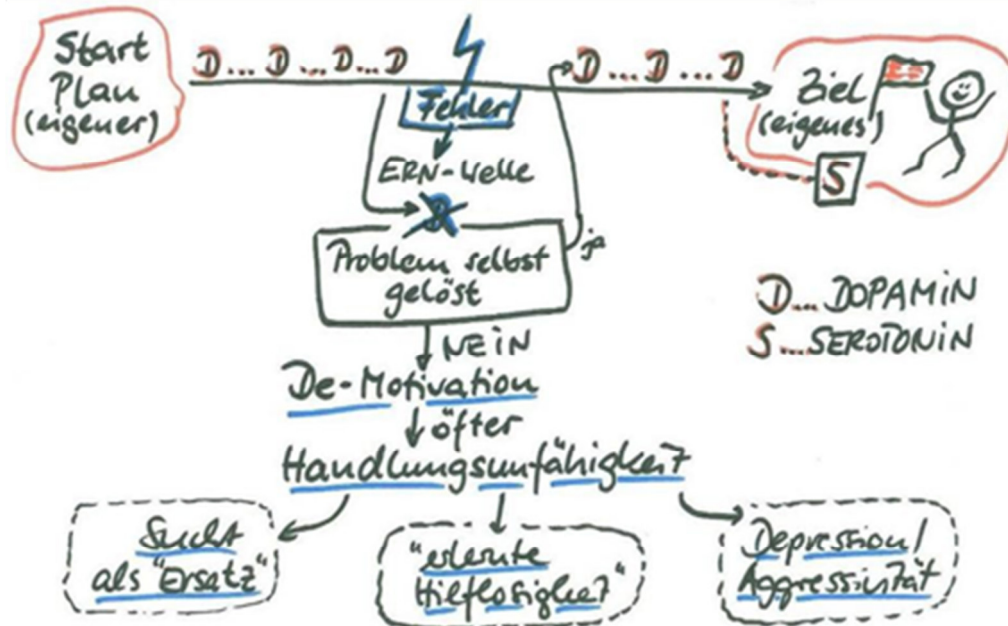 Start
Plan
(eigener)
D...D...D...D
D...D...D
Fehler
ERN-Welle
D
Problem selbst
gelöst
ja
Ziel
(eigenes)
S
D...DOPAMiN
S...SEROTONiN
NEiN
De-Motivation
öfter
Handlungsunfähigkeit
Sucht
als "Ersatz"
"erlernte
Hilflosigkeit"
Depression/
Aggressivität